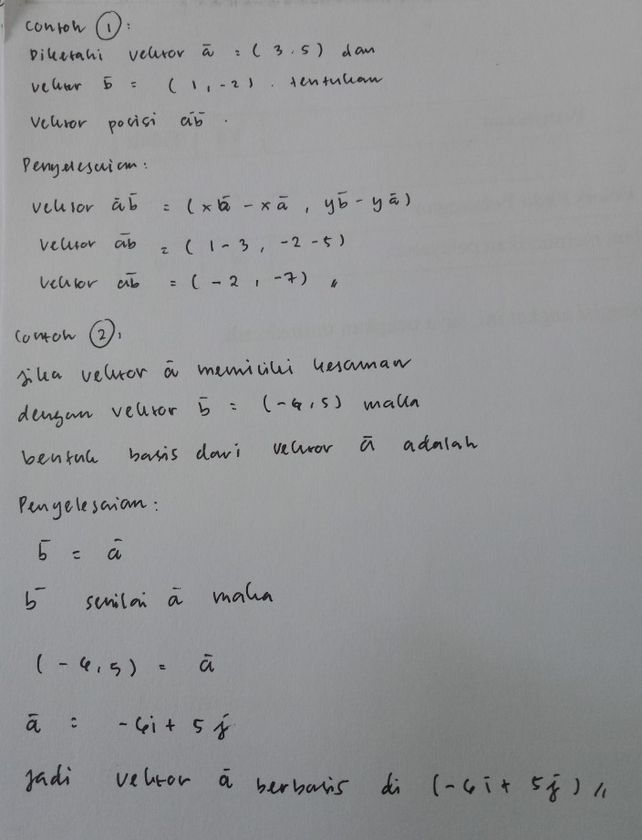 Contoh ①:
Diketahi vektor ā = (3.5) dan
vektor b̄ = (1, -2). tentukan
Vektor posisi āb̄.
Penyelesaian:
vektor āb̄ = (xb̄ - xā, yb̄ - yā)
vektor āb̄ = (1-3, -2-5)
vektor āb̄ = (-2, -7) //
Contoh ②,
jika vektor ā memiliki kesaman
dengan vektor b̄ = (-4,5) maka
bentuk basis dari vektor ā adalah
Penyelesaian:
b̄ = ā
b̄ senilai ā maka
(-4,5) = ā
ā = -4i + 5j
jadi vektor ā berbasis di (-4i + 5j) //